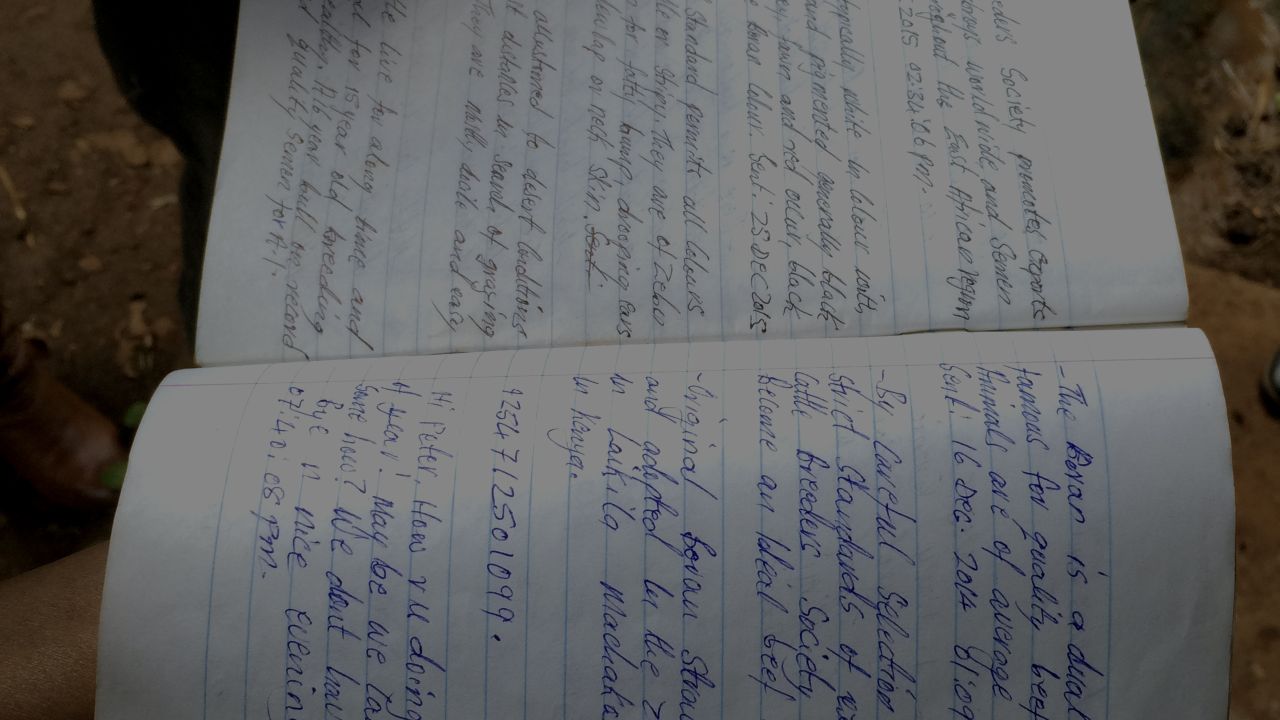 eders Society promotes exports
worldwide and Semen
the East African region
2015 02:34:06 pm.
typically white in colour with
pigmented generally black
and red occur, black
Boran Unu. Sent: 25 Dec 2015
Standard permits all colours
or stripy. They are of Zebu
for fatty hump, drooping ears
or neck skin.
to desert conditions
distances in search of grazing
They are mildly, docile and easy
He live for along time and
for 15 year old breeding
A 16 year bull on record
quality Semen for A.I.
- The Boran is a dual
famous for quality beef
Animals are of average
Sent: 16 Dec. 2014 01:09
- By Careful Selection
Strict Standards of
Cattle Breeders Society
Become an Ideal beef
- Original Boran
and adopted in the
in Laikia Machako
in Kenya.
+254712501099.
Hi Peter, How r u doing
4 year! May be we
Some how? We dont
Bye n nice evenin
07:40:08 pm.